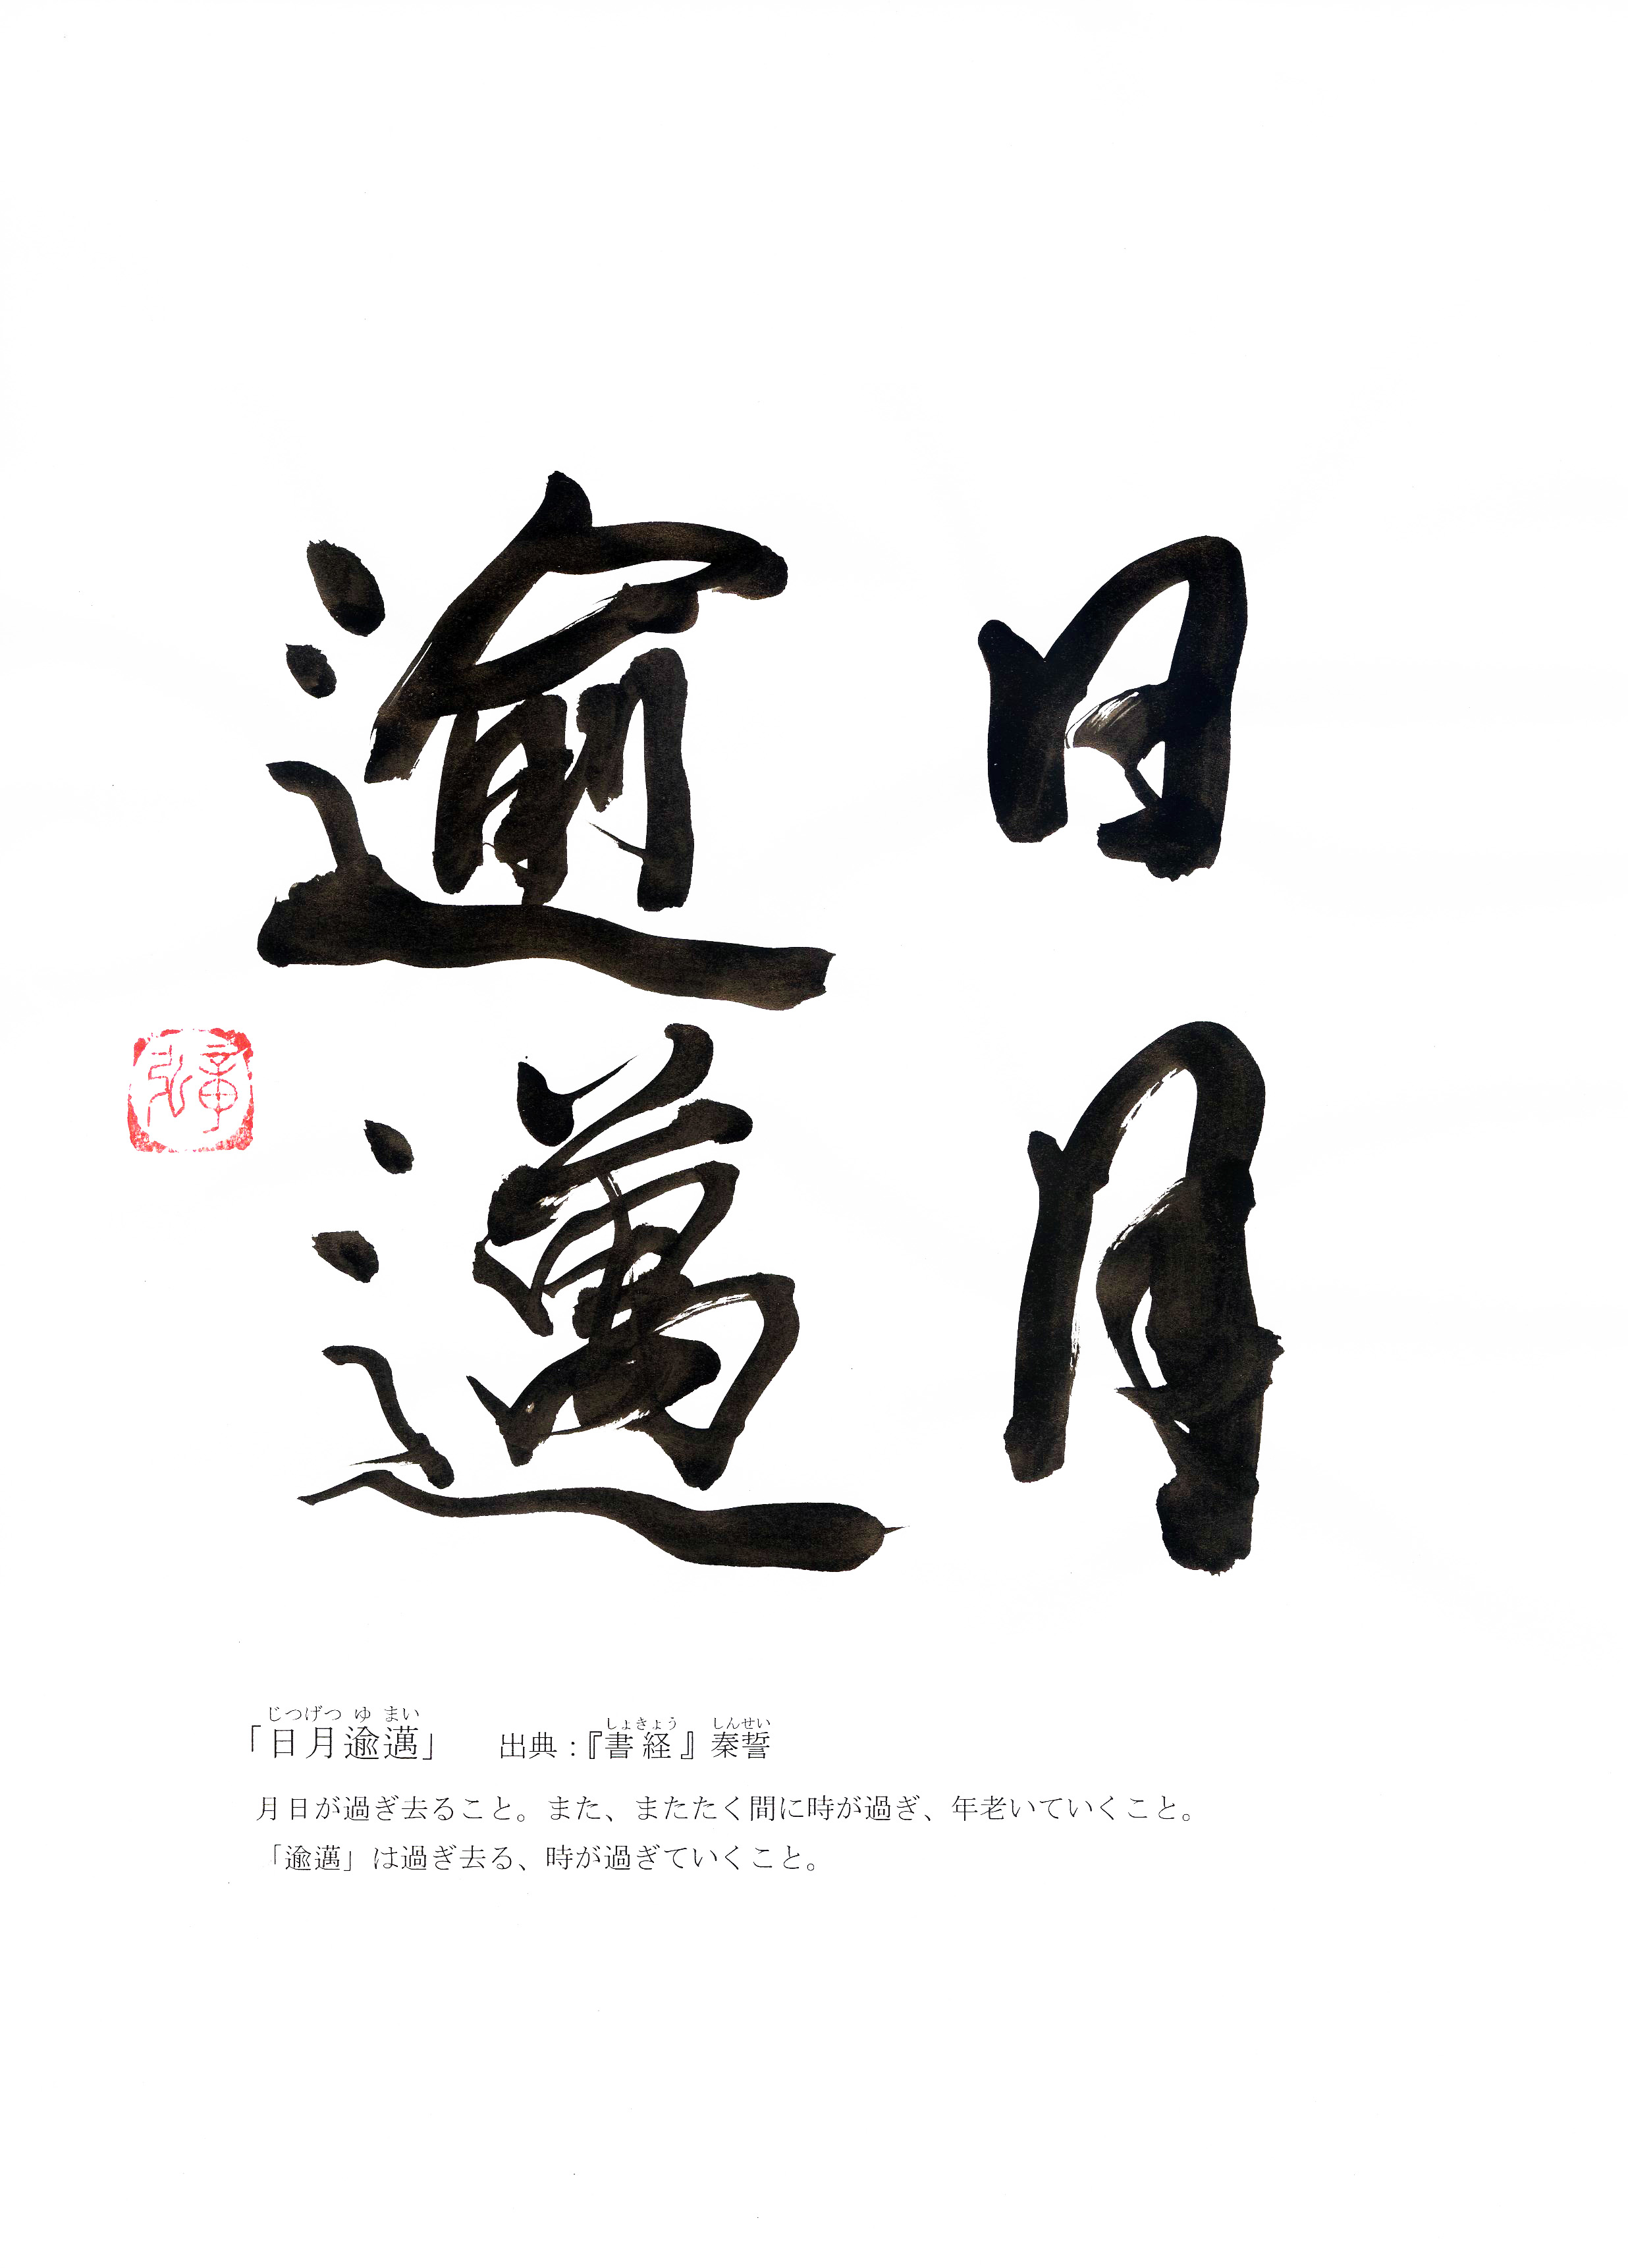 日月
逾邁
「日月逾邁」 出典：『書経』秦誓
じつげつ ゆ まい しょきょう しんせい
月日が過ぎ去ること。また、またたく間に時が過ぎ、年老いていくこと。
「逾邁」は過ぎ去る、時が過ぎていくこと。